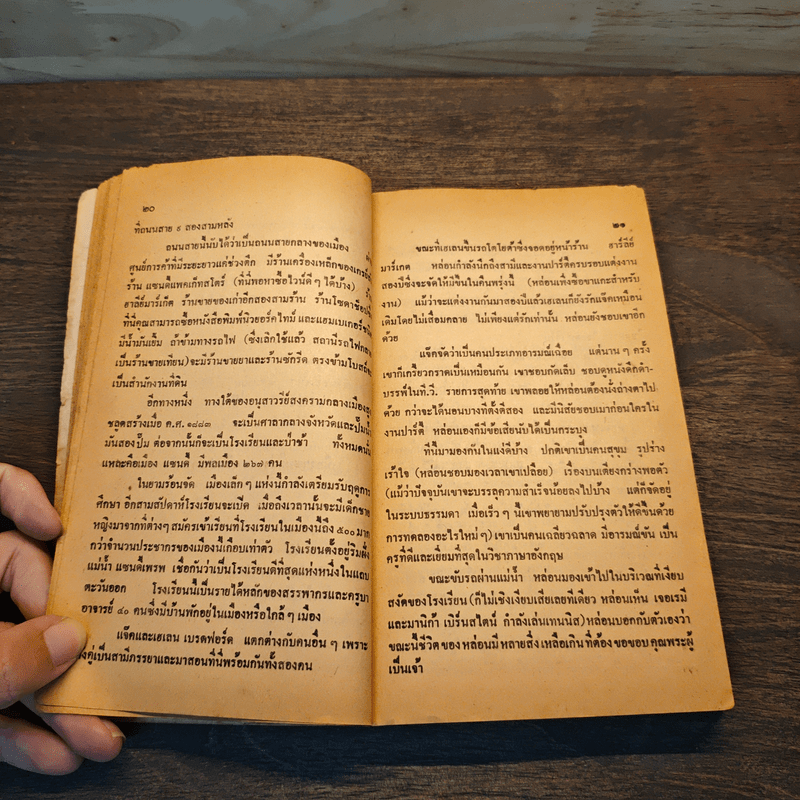 ๒๐
ที่ถนนสาย ๙ สองสามหลัง
ถนนสายนี้นับได้ว่าเป็นถนนสายกลางของเมือง
ศูนย์การค้าที่มีระยะยาวแค่ช่วงตึก มีร้านเครื่องเหล็กของเกรย์
ร้าน แซนดี้แพคเก็ทสโตร์ (ที่นี่พอหาซื้อไวน์ดี ๆ ได้บ้าง)
ฮาลีย์มาร์เก็ต ร้านขายของเก่าอีกสองสามร้าน ร้านโซดาช็อป
ที่ที่คุณสามารถซื้อหนังสือพิมพ์นิวยอร์คไทม์ และแฮมเบเกอร์
มีน้ำมันเยิ้ม ถ้าข้ามทางรถไฟ (ซึ่งเลิกใช้แล้ว สถานีรถไฟกลาย
เป็นร้านขายเทียน) จะมีร้านขายยาและร้านซักรีด ตรงข้ามโบสถ์
เป็นสำนักงานที่ดิน
อีกทางหนึ่ง ทางใต้ของอนุสาวรีย์สงครามกลางเมือง
ขลุดสร้างเมื่อ ค.ศ. ๑๘๘๓ จะเป็นศาลากลางจังหวัดและปั๊มน้ำ
มันสองปั๊ม ต่อจากนั้นก็จะเป็นโรงเรียนและป่าช้า ทั้งหมดนี้
แหละคือเมือง แซนดี้ มีพลเมือง ๒๖๗ คน
ในยามร้อนจัด เมืองเล็ก ๆ แห่งนี้กำลังเตรียมรับฤดูการ
ศึกษา อีกสามสัปดาห์โรงเรียนจะเปิด เมื่อถึงเวลานั้นจะมีเด็กชาย
หญิงมาจากที่ต่างๆ สมัครเข้าเรียนที่โรงเรียนในเมืองนี้ถึง ๕๐๐ มาก
กว่าจำนวนประชากรของเมืองนี้เกือบเท่าตัว โรงเรียนตั้งอยู่ริมฝั่ง
แม่น้ำ แซนดี้เพรพ เชื่อกันว่าเป็นโรงเรียนดีที่สุดแห่งหนึ่งในแถบ
ตะวันออก โรงเรียนนี้เป็นรายได้หลักของสรรพากรและครูบา
อาจารย์ ๔๐ คนซึ่งมีบ้านพักอยู่ในเมืองหรือใกล้ ๆ เมือง
แจ๊คและเฮเลน เบรดฟอร์ด แตกต่างกับคนอื่น ๆ เพราะ
คู่เป็นสามีภรรยาและมาสอนที่นี่พร้อมกันทั้งสองคน
๒๑
ขณะที่เฮเลนขึ้นรถโตโยต้าซึ่งจอดอยู่หน้าร้าน ฮาร์ลีย์
มาร์เกต หล่อนกำลังนึกถึงสามีและงานปาร์ตี้ครบรอบแต่งงาน
สองปีซึ่งจะจัดให้มีขึ้นในคืนพรุ่งนี้ (หล่อนเพิ่งซื้อขาแกะสำหรับ
งาน) แม้ว่าจะแต่งงานกันมาสองปีแล้วเฮเลนก็ยังรักแจ็คเหมือน
เดิมโดยไม่เสื่อมคลาย ไม่เพียงแต่รักเท่านั้น หล่อนยังชอบเขาอีก
ด้วย
แจ๊คจัดว่าเป็นคนประเภทอารมณ์เฉื่อย แต่นาน ๆ ครั้ง
เขาก็เกรี้ยวกราดเป็นเหมือนกัน เขาชอบกัดเล็บ ชอบดูหนังดึกดำ-
บรรพ์ในที.วี. รายการสุดท้าย เขาพลอยให้หล่อนต้องนั่งถ่างตาไป
ด้วย กว่าจะได้นอนบางทีตั้งตีสอง และมีนิสัยชอบเมาก่อนใครใน
งานปาร์ตี้ หล่อนเองก็มีข้อเสียนับได้เป็นกระบุง
ทีนี้มามองกันในแง่ดีบ้าง ปกติเขาเป็นคนสุขุม รูปร่าง
เร้าใจ (หล่อนชอบมองเวลาเขาเปลือย) เรื่องบนเตียงกว่างพอตัว
(แม้ว่าปัจจุบันเขาจะบรรลุความสำเร็จน้อยลงไปบ้าง แต่ก็จัดอยู่
ในระบบธรรมดา เมื่อเร็ว ๆ นี้เขาพยายามปรับปรุงตัวให้ดีขึ้นด้วย
การทดลองอะไรใหม่ ๆ) เขาเป็นคนเฉลียวฉลาด มีอารมณ์ขัน เป็น
ครูที่ดีและเยี่ยมที่สุดในวิชาภาษาอังกฤษ
ขณะขับรถผ่านแม่น้ำ หล่อนมองเข้าไปในบริเวณที่เงียบ
สงัดของโรงเรียน (ก็ไม่เชิงเงียบเสียเลยทีเดียว หล่อนเห็น เจอเรมี่
และมานิก้า เบิร์นสไตน์ กำลังเล่นเทนนิส) หล่อนบอกกับตัวเองว่า
ขณะนี้ชีวิต ของ หล่อนมี หลายสิ่ง เหลือเกิน ที่ต้อง ขอขอบ คุณพระผู้
เป็นเจ้า